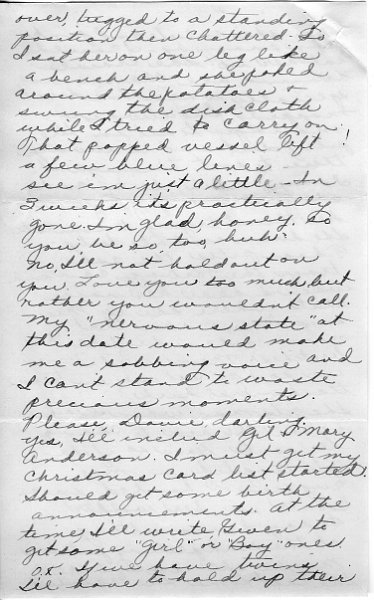 over, tugged to a standing
position then chattered. So
I sat her on one leg like
a bench and she poked
around the potatoes &
swung the dish cloth
while I tried to carry on!
That popped vessel left
a few blue lines
see im just a little - In
3 weeks it's practically
gone. I'm glad, honey. So
you be so, too, huh?
No, I'll not hold out on
you. Love you too much, but
rather you wouldn't call.
My "nervous state" at
this date would make
me a sobbing voice and
I can't stand to waste
precious moments.
Please, Davie, darling.
Yes, I'll include Gil & Mary
Anderson. I must get my
Christmas card list started.
Should get some birth
announcements. At the
time, I'll write Gwen to
get some "Girl" or "Boy" ones
O.K. If we have twins
I'll have to hold up their